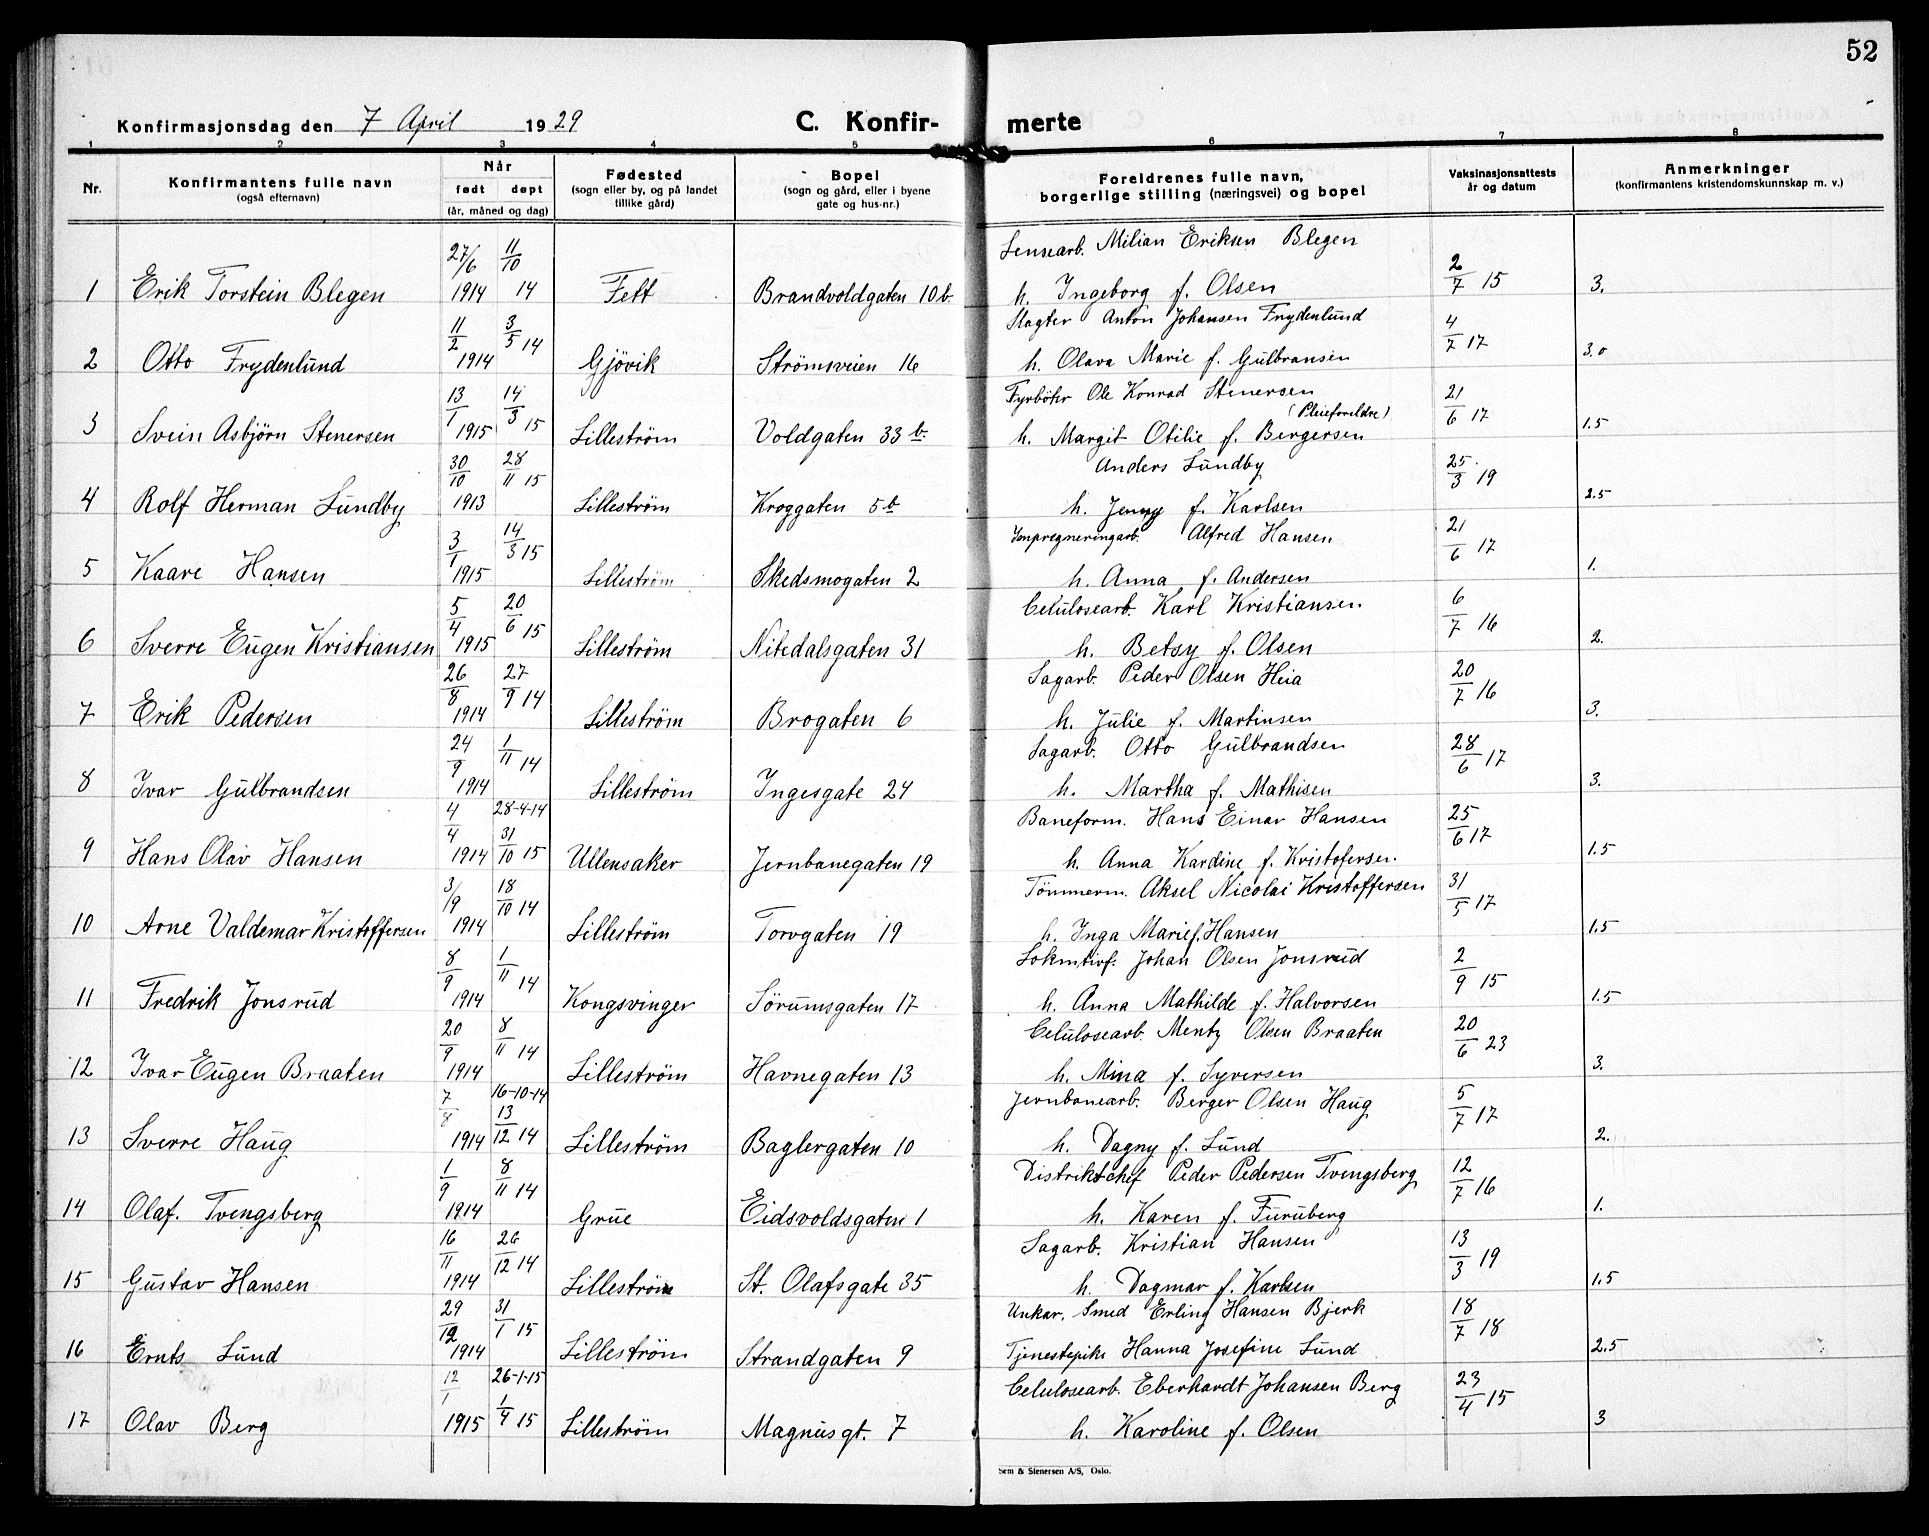 52
Konfirmasjonsdag den 7 April 1929 C. Konfir- merte
1 2 3 4 5 6 7 8
Nr. Konfirmantens fulle navn (også efternavn) Når født døpt (år, måned og dag) Fødested (sogn eller by, og på landet tillike gård) Bopel (sogn og gård, eller i byene gate og hus-nr.) Foreldrenes fulle navn, borgerlige stilling (næringsvei) og bopel Vaksinasjonsattests år og datum Anmerkninger (konfirmantens kristendomskunnskap m. v.)
27/6 11/10 Lensearb. Milian Eriksen Blegen
1 Erik Torstein Blegen 1914 14 Fett Brandvoldgaten 10b. h. Ingeborg f. Olsen 2/7 15 3.
11/2 3/5 14 Slagter Anton Johansen Frydenlund
2 Otto Frydenlund 1914 Gjövik Strömsveien 16 h. Olava Marie f. Gulbransen 4/7 17 3.0
13/1 14/3 15 Fyrböter Ole Konrad Stenersen
(Pleieforeldre)
3 Svein Asbjörn Stenersen 1915 Lilleström Voldgaten 33 b. h. Margit Otilie f. Bergersen 21/6 17 1.5
30/10 28/11 15 Anders Lundby
4 Rolf Herman Lundby 1913 Lilleström Kroggaten 5b h. Jenny f. Karlsen 25/3 19 2.5
3/1 14/3 15 Impregneringarb. Alfred Hansen
5 Kaare Hansen 1915 Lilleström Skedsmogaten 2 h. Anna f. Andersen 21/6 17 1.
5/4 20/6 15 Celulosearb. Karl Kristiansen
6 Sverre Eugen Kristiansen 1915 Lilleström Nitedalsgaten 31 h. Betsy f. Olsen 6/7 16 2.
26/8 27/9 14 Sagarb. Peder Olsen Heia
7 Erik Pedersen 1914 Lilleström Brogaten 6 h. Julie f. Martinsen 20/7 16 3.
24/9 1/11 14 Sagarb. Otto Gulbrandsen
8 Ivar Gulbrandsen 1914 Lilleström Ingesgate 24 h. Martha f. Mathisen 28/6 17 3.
4/4 28-4-14 Baneform. Hans Einar Hansen
9 Hans Olav Hansen 1914 31/10 15 Ullensaker Jernbanegaten 19 h. Anna Kardine f. Kristofersen. 25/6 17 1.5
3/9 18/10 14 Tömmerm. Aksel Nicolai Kristoffersen
10 Arne Valdemar Kristoffersen 1914 Lilleström Torvgaten 19 h. Inga Marie f. Hansen 31/5 17 1.5
8/9 1/11 14 Lokmtivf. Johan Olsen Jonsrud
11 Fredrik Jonsrud 1914 Kongsvinger Sörumsgaten 17 h. Anna Mathilde f. Halvorsen 2/9 15 1.5
20/9 8/11 14 Celulosearb. Mentz Olsen Braaten
12 Ivar Eugen Braaten 1914 Lilleström Havnegaten 13 h. Mina f. Syversen 20/6 23 3.
7/8 16-10-14 Jernbanearb. Berger Olsen Haug
13 Sverre Haug 1914 13/12 14 Lilleström Baglergaten 10 h. Dagny f. Lund 5/7 17 2.
1/9 8/11 14 Distriktschef Peder Pedersen Tvengsberg
14 Olaf. Tvengsberg 1914 Grue Eidsvoldsgaten 1 h. Karen f. Furuberg 12/7 16 1.
16/11 26/12 14 Sagarb. Kristian Hansen
15 Gustav Hansen 1914 Lilleström St. Olafsgate 35 h. Dagmar f. Karlsen 13/3 19 1.5
29/12 31/1 15 Unkar. Smed Erling Hansen Bjerk
16 Ernts Lund 1914 Lilleström Strandgaten 9 Tjenestepike Hanna Josefine Lund 18/7 18 2.5
12/1 26-1-15 Celulosearb. Eberhardt Johansen Berg
17 Olav Berg 1915 1/4 15 Lilleström Magnusgt. 7 h. Karoline f. Olsen 23/4 15 3
Sem & Stenersen A/S, Oslo.